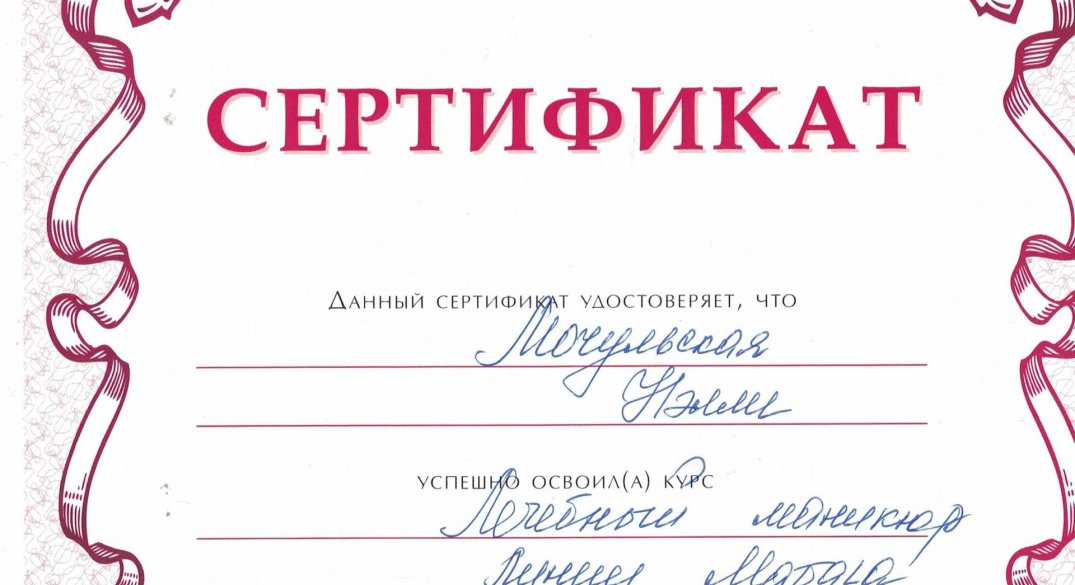 СЕРТИФИКАТ
Данный сертификат удостоверяет, что
Мочульская
Нэлли
успешно освоил(а) курс
Лечебный маникюр
линии